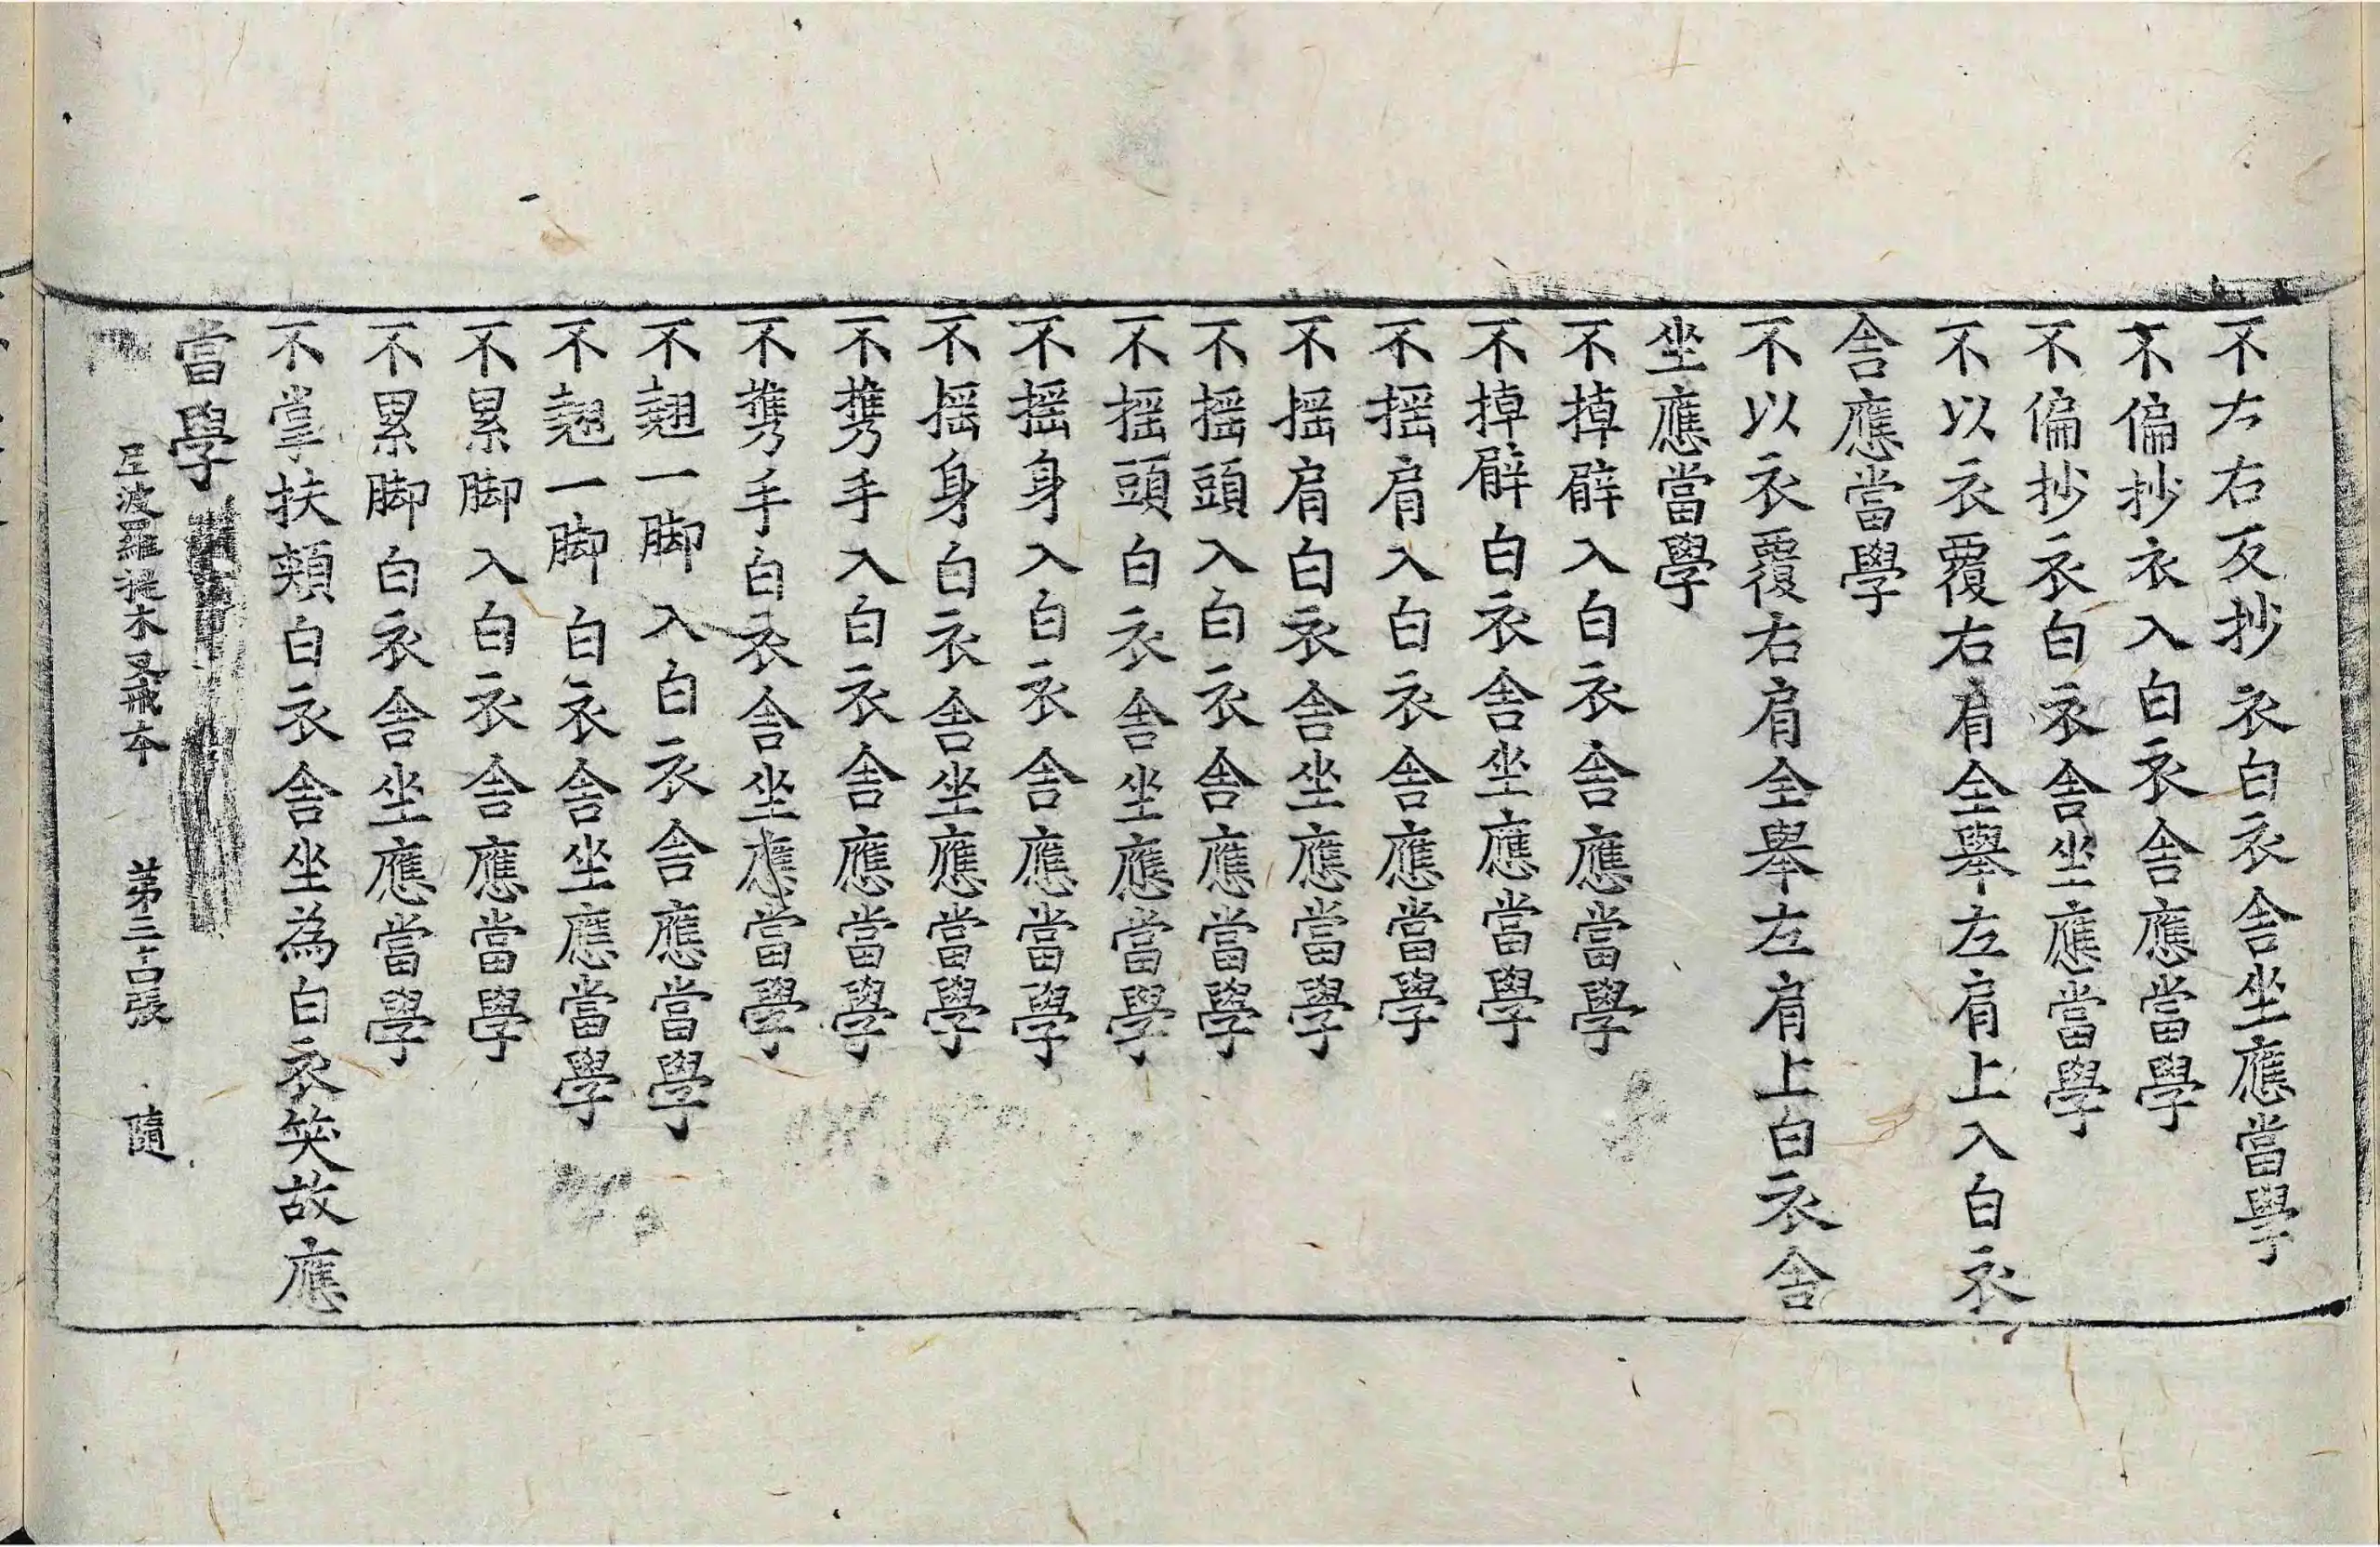 不左右反抄衣白衣舍坐應當學
不偏抄衣入白衣舍應當學
不偏抄衣白衣舍坐應當學
不以衣覆右肩全舉左肩上入白衣
舍應當學
不以衣覆右肩全舉左肩上白衣舍
坐應當學
不掉臂入白衣舍應當學
不掉臂白衣舍坐應當學
不揺肩入白衣舍應當學
不揺肩白衣舍坐應當學
不揺頭入白衣舍應當學
不揺頭白衣舍坐應當學
不揺身入白衣舍應當學
不揺身白衣舍坐應當學
不携手入白衣舍應當學
不携手白衣舍坐應當學
不翹一脚入白衣舍應當學
不翹一脚白衣舍坐應當學
不累脚入白衣舍應當學
不累脚白衣舍坐應當學
不掌扶頰白衣舍坐為白衣笑故應
當學
波羅提木叉戒本 第三十 張 隨